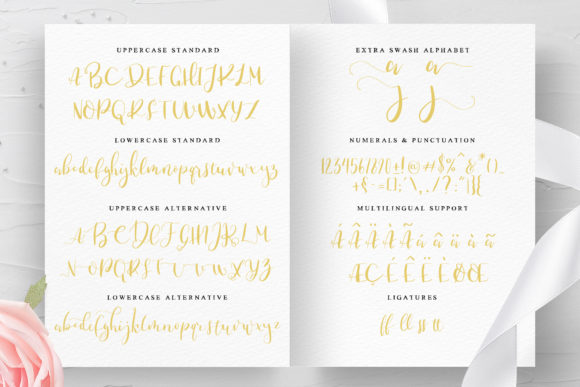 UPPERCASE STANDARD
ABCDEFGHIJKLM
NOPQRSTUVWXYZ
LOWERCASE STANDARD
abcdefghijklmnopqrstuvwxyz
UPPERCASE ALTERNATIVE
ABCDEFGHIJKLM
NOPQRSTUVWXYZ
LOWERCASE ALTERNATIVE
abcdefghijklmnopqrstuvwxyz
EXTRA SWASH ALPHABET
a a
NUMERALS & PUNCTUATION
MULTILINGUAL SUPPORT
ÁÂÄÀÃáâäàã
LIGATURES
ff ll ss tt